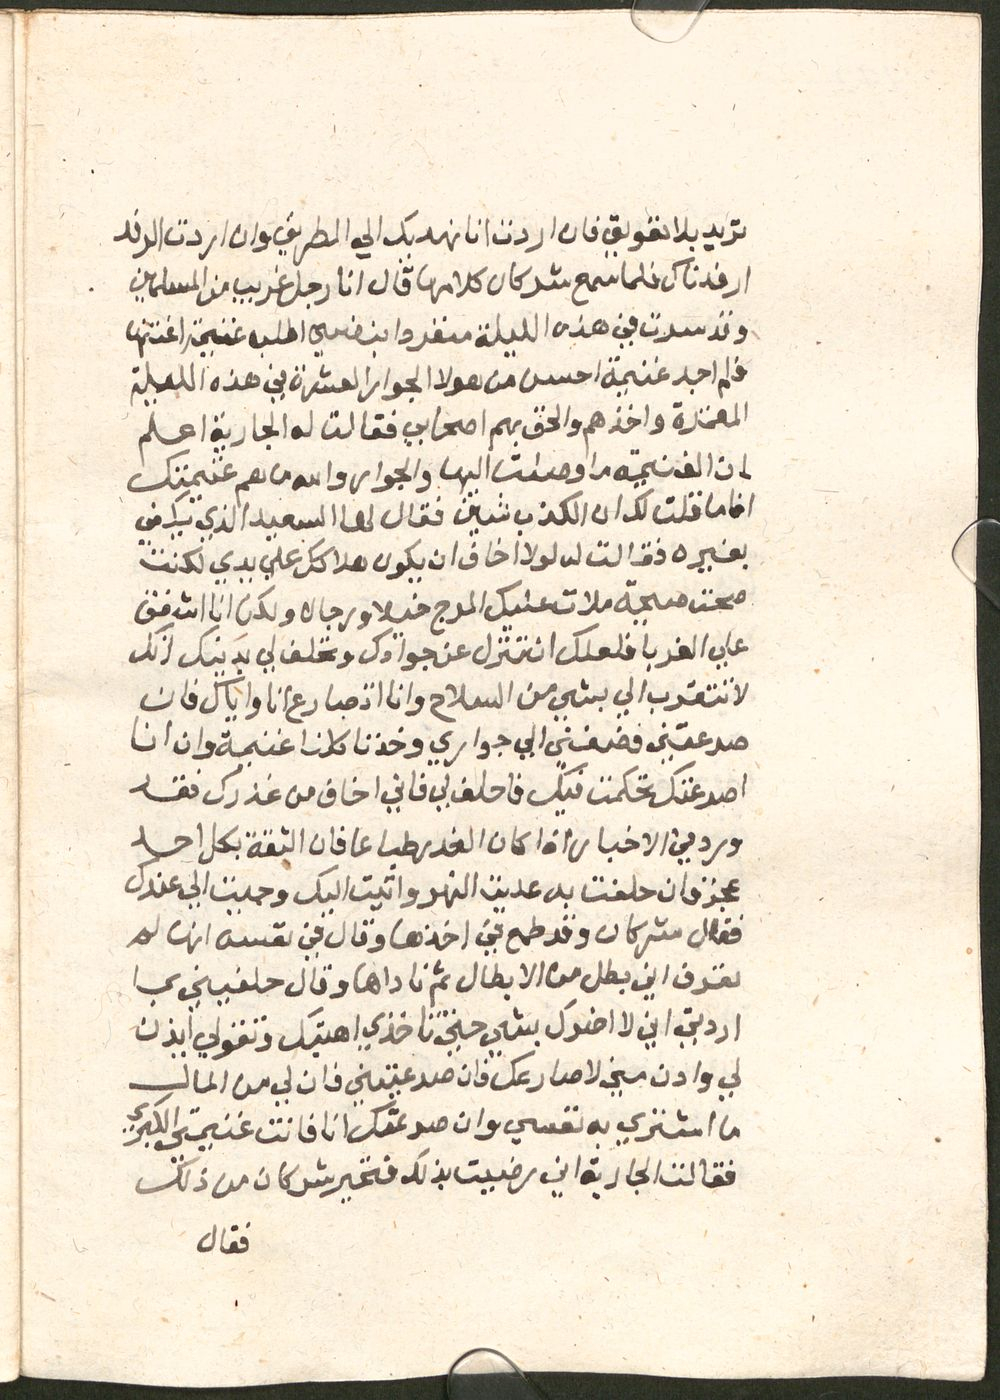 تريد بلا تعويق فان اردت انا نهديك الي الطريق وان اردت الرفد
ارفدناك فلما سمع شركان كلامها قال انا رجل غريب من المسلمين
وقد سرت في هذه الليلة منفردا بنفسي اطلب غنيمة اغتنمها
فلم اجد غنيمة احسن من هولا الجوار العشرة في هذه الليلة
المقمرة واخذهم والحق بهم اصحابي فقالت له الجارية اعلم
ان الغنيمة ما وصلت اليها والجوار والله ما هم غنيمتك
اما ما قلت لك ان الكذب شين فقال لها السعيد الذي يكتفي
بغيره فقالت له لولا اخاف ان يكون هلاكك علي يدي لكنت
صحت صيحة ملات عليك المرج خيلا ورجالا ولكن انا اشفق
علي الغربا فلعلك ان تنزل عن جوادك وتحلف لي بدينك انك
لا تتقرب الي بشي من السلاح وانا اتصارع انا واياك فان
صرعتني فضفني الي جواري وخذنا كلنا غنيمة وان انا
اصرعتك تحكمت فيك فاحلف لي فاني اخاف من غدرك فقد
ورد في الاخبار اذا كان الغدر طباعا فان الثقة بكل احد
عجز فان حلفت لي عديت النهر واتيت اليك وجيت الي عندك
فقال شركان وقد طمع في اخذها وقال في نفسه انها لم
تعرف اني بطل من الابطال ثم ناداها وقال حلفيني بما
اردتي اني لا اضرك بشي حتي تاخذي اهبتك وتقولي ايذن
لي وادن مني لاصارعك فان صرعتيني فان لي من المال
ما اشتري به نفسي وان صرعتك انا فانت غنيمتي الكبري
فقالت الجارية اني رضيت بذلك فتحير شركان من ذلك
فقال